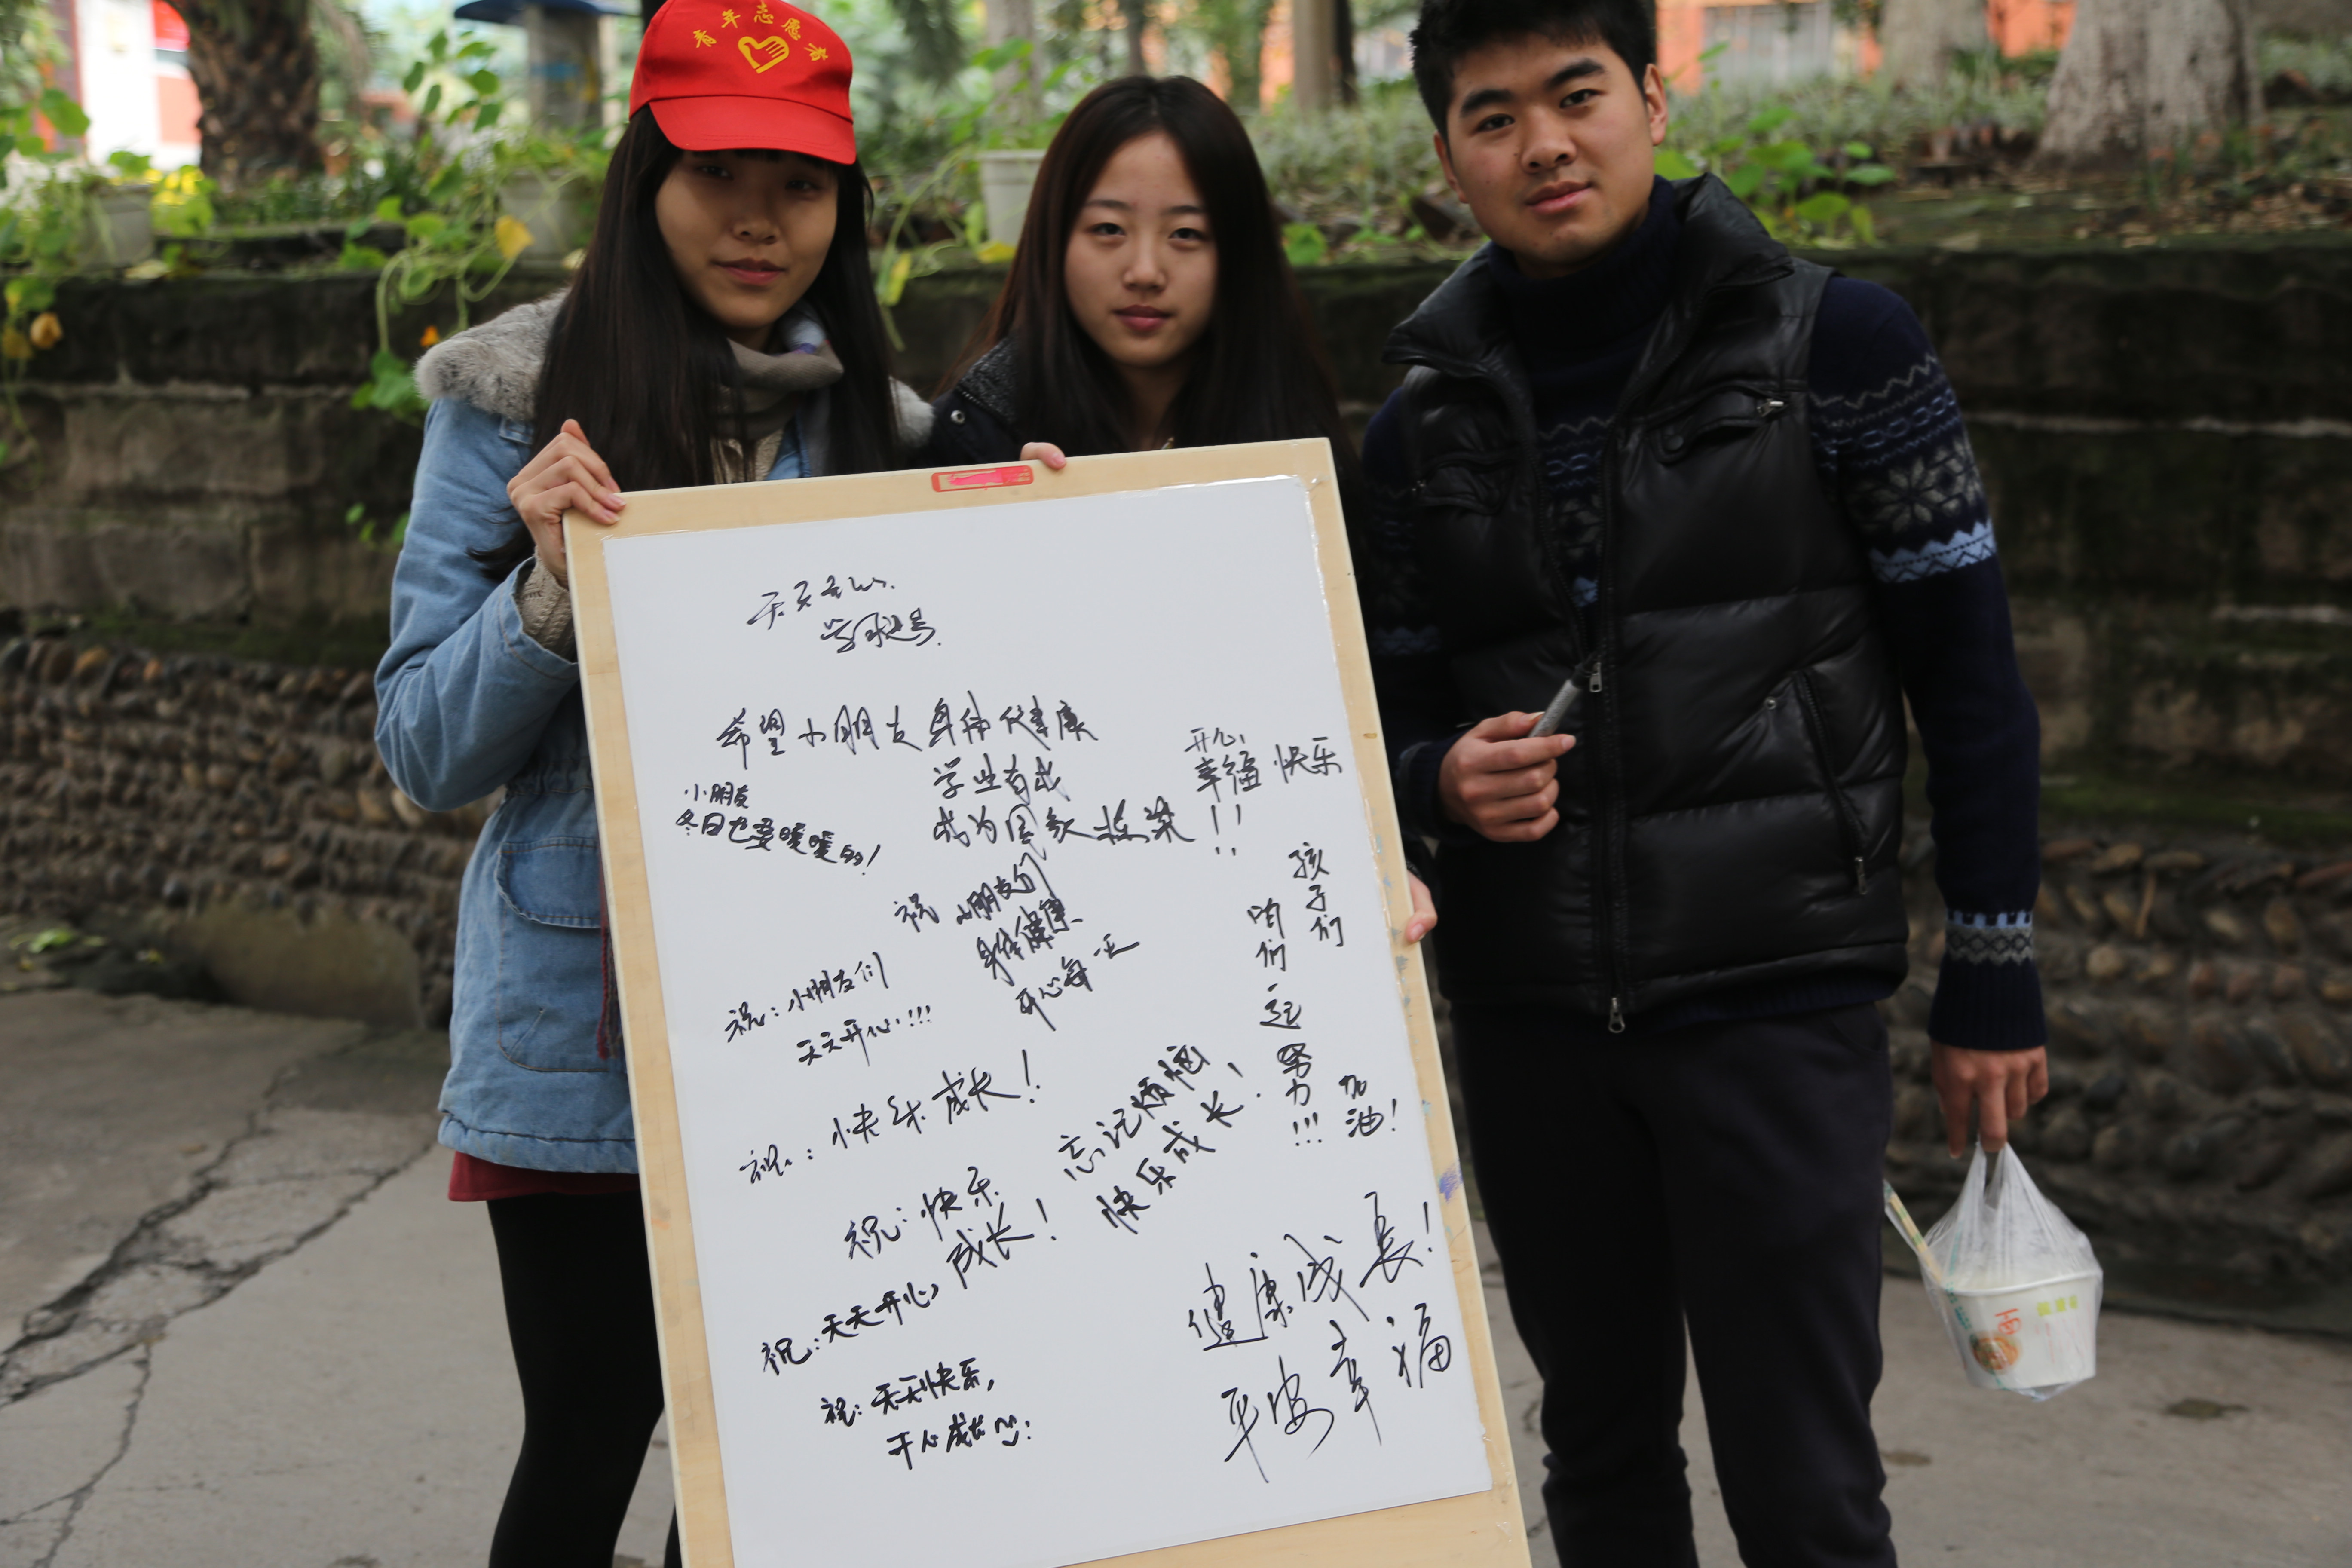 青年志愿者
天天开心
学习进步
希望小朋友身体健康
学业有成
成为国家栋梁!!
开心
幸福 快乐
小朋友
冬日也要暖暖的!
祝 小朋友们
身体健康
开心每一天
祝:小朋友们
天天开心!!!
祝:快乐成长!
祝:快乐
成长!
忘记烦恼
快乐成长!
孩子们
咱们一起努力!!!
加油!
祝:天天开心
祝:天天快乐,
开心成长
健康成長!
平安幸福
面